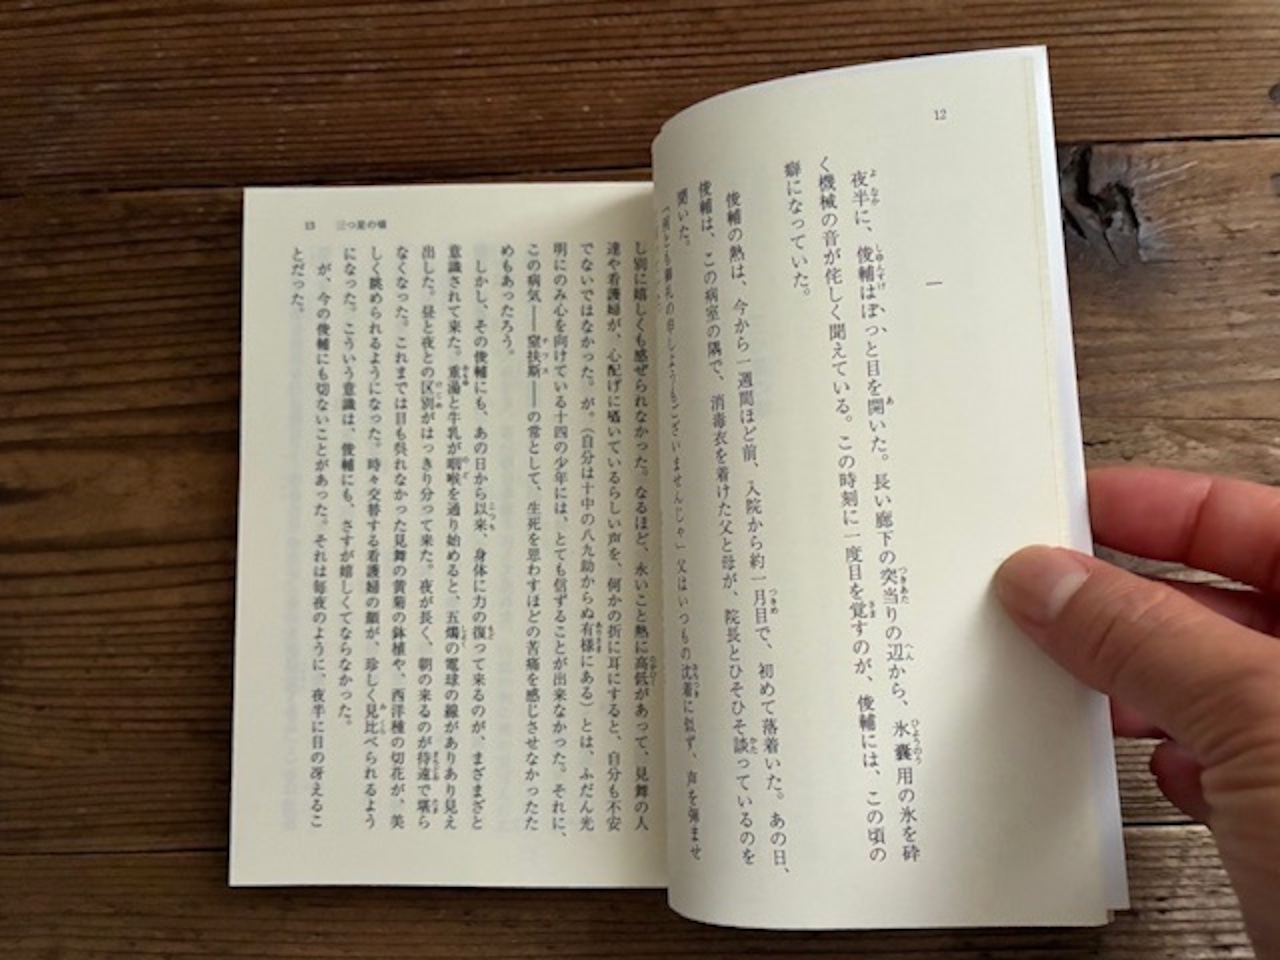 12
一
夜半に、俊輔はぽっと目を開いた。長い廊下の突当りの辺から、氷嚢用の氷を砕
く機械の音が侘しく聞えている。この時刻に一度目を覚すのが、俊輔には、この頃の
癖になっていた。
俊輔の熱は、今から一週間ほど前、入院から約一月目で、初めて落着いた。あの日、
俊輔は、この病室の隅で、消毒衣を着けた父と母が、院長とひそひそ談っているのを
聞いた。
「何とも御礼の申しようもございませんじゃ」父はいつもの沈着に似ず、声を弾ませ
13 三つ星の頃
し別に嬉しくも感ぜられなかった。なるほど、永いこと熱に高低があって、見舞の人
達や看護婦が、心配げに囁いているらしい声を、何かの折に耳にすると、自分も不安
でないではなかった。が。(自分は十中の八九助からぬ有様にある)とは、ふだん光
明にのみ心を向けている十四の少年には、とても信ずることが出来なかった。それに、
この病気――窒扶斯――の常として、生死を思わすほどの苦痛を感じさせなかったた
めもあったろう。
しかし、その俊輔にも、あの日から以来、身体に力の復って来るのが、まざまざと
意識されて来た。重湯と牛乳が咽喉を通り始めると、五燭の電球の線がありあり見え
出した。昼と夜との区別がはっきり分って来た。夜が長く、朝の来るのが待遠で堪ら
なくなった。これまでは目も呉れなかった見舞の黄菊の鉢植や、西洋種の切花が、美
しく眺められるようになった。時々交替する看護婦の顔が、珍しく見比べられるよう
になった。こういう意識は、俊輔にも、さすが嬉しくてならなかった。
が、今の俊輔にも切ないことがあった。それは毎夜のように、夜半に目の冴えるこ
とだった。